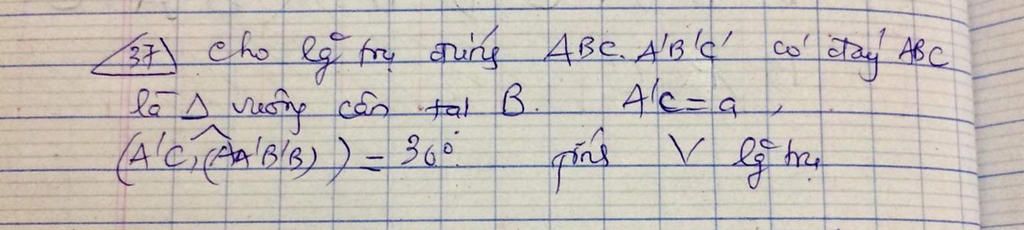 37) Cho lg̃ trụ đứng ABC.A'B'C' có đáy ABC
là Δ vuông cân tại B. A'C = a,
(A'C, (AA'B'B)) = 30° tính V lg̃ trụ